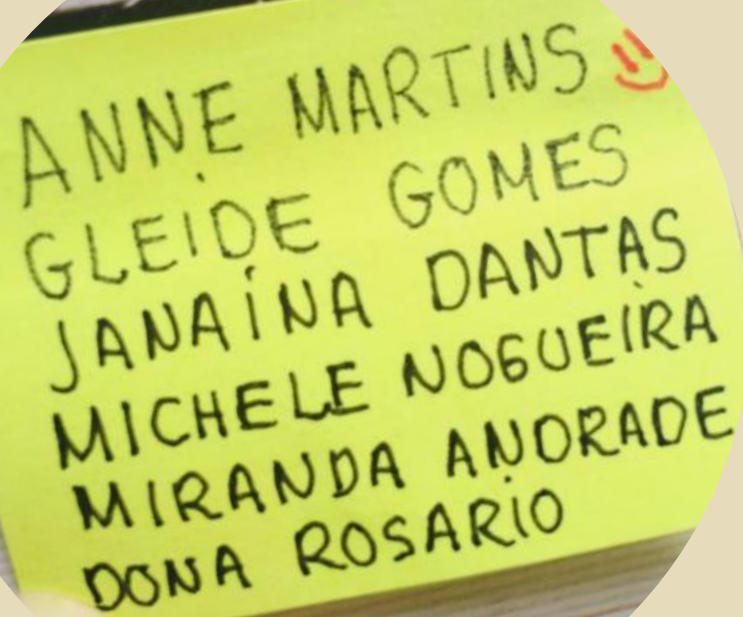 ANNE MARTINS
GLEIDE GOMES
JANAÍNA DANTAS
MICHELE NOGUEIRA
MIRANDA ANDRADE
DONA ROSARIO